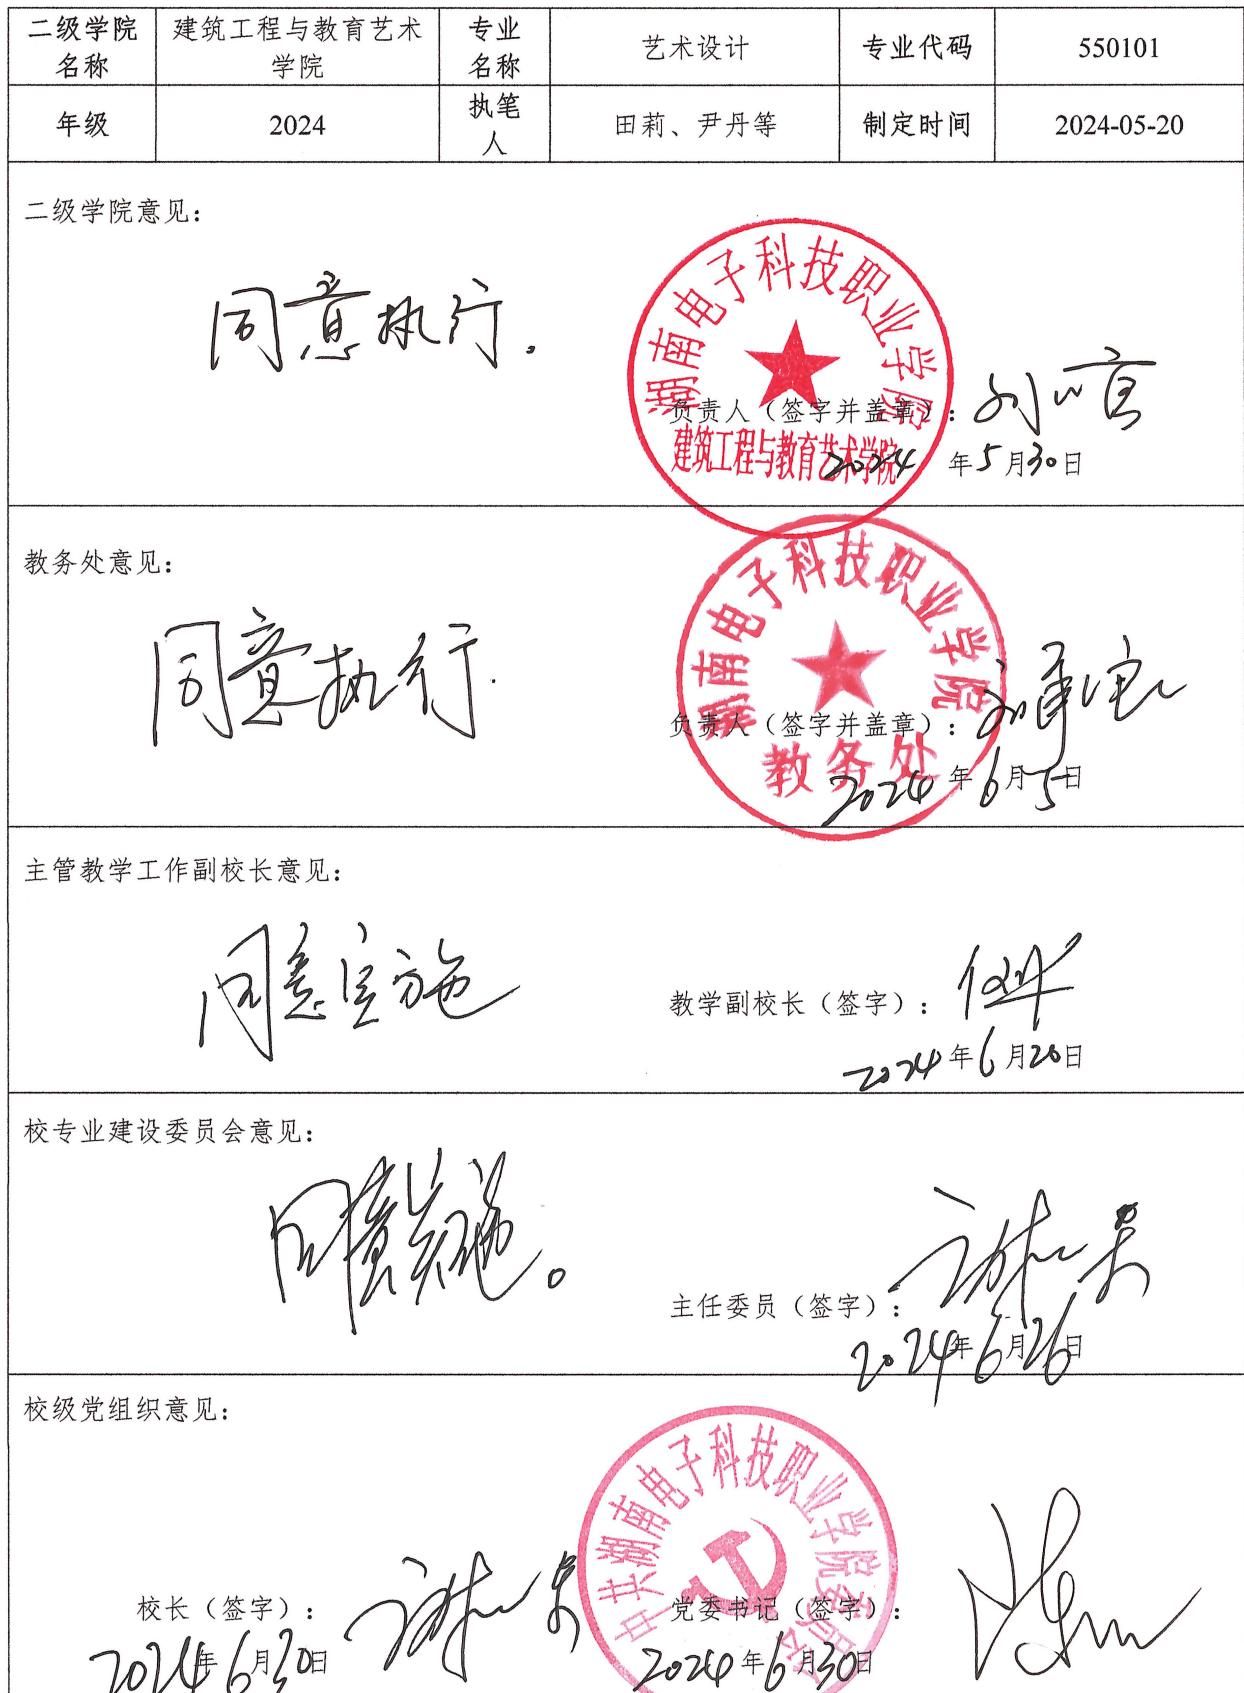 二级学院名称 建筑工程与教育艺术学院 专业名称 艺术设计 专业代码 550101
年级 2024 执笔人 田莉、尹丹等 制定时间 2024-05-20
二级学院意见：
同意执行.
湖南电子科技职业学院
建筑工程与教育艺术学院
负责人（签字并盖章）：
2024年5月30日
教务处意见：
同意执行.
湖南电子科技职业学院
教务处
负责人（签字并盖章）：
2024年6月5日
主管教学工作副校长意见：
同意实施
教学副校长（签字）：
2024年6月20日
校专业建设委员会意见：
同意实施。
主任委员（签字）：
2024年6月26日
校级党组织意见：
中共湖南电子科技职业学院委员会
校长（签字）：
2024年6月30日
党委书记（签字）：
2024年6月30日